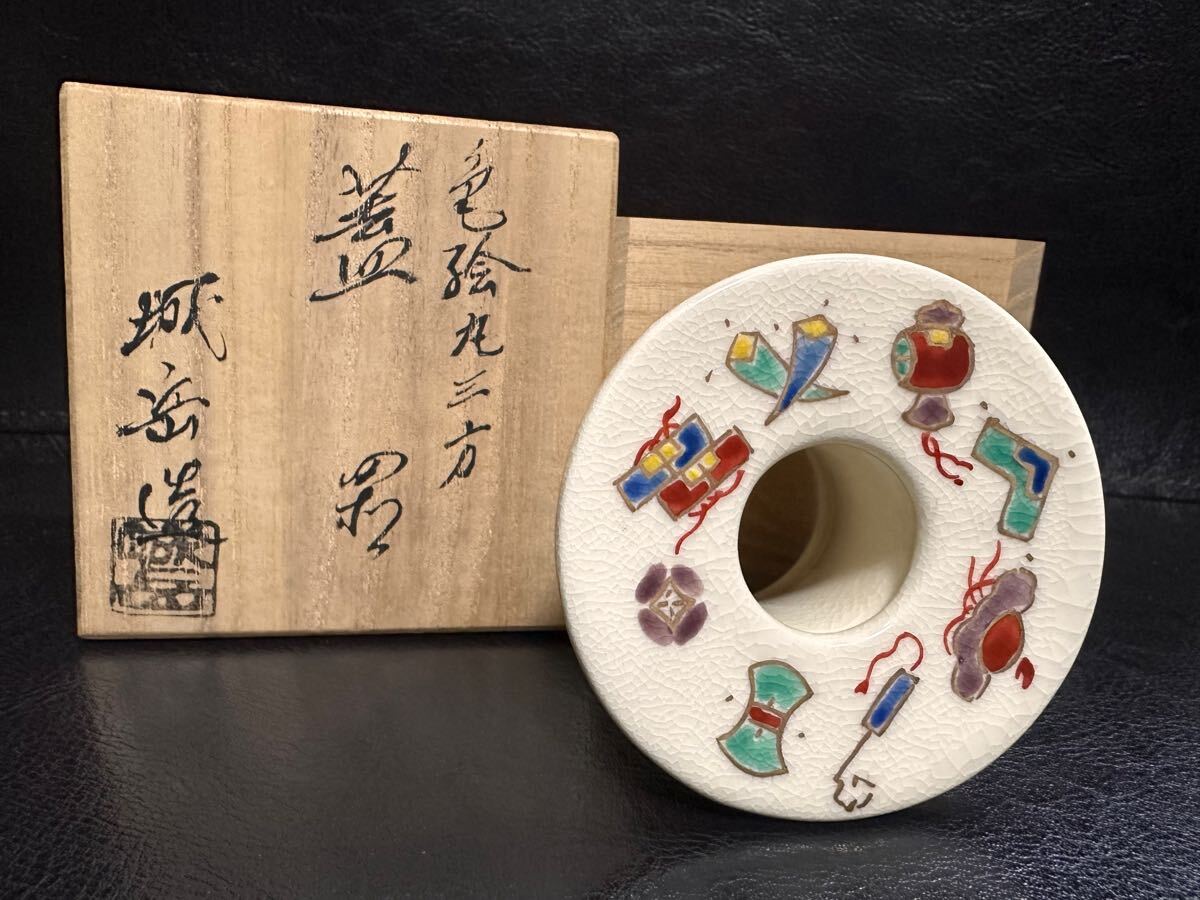 色絵丸三方
蓋置
城岳造